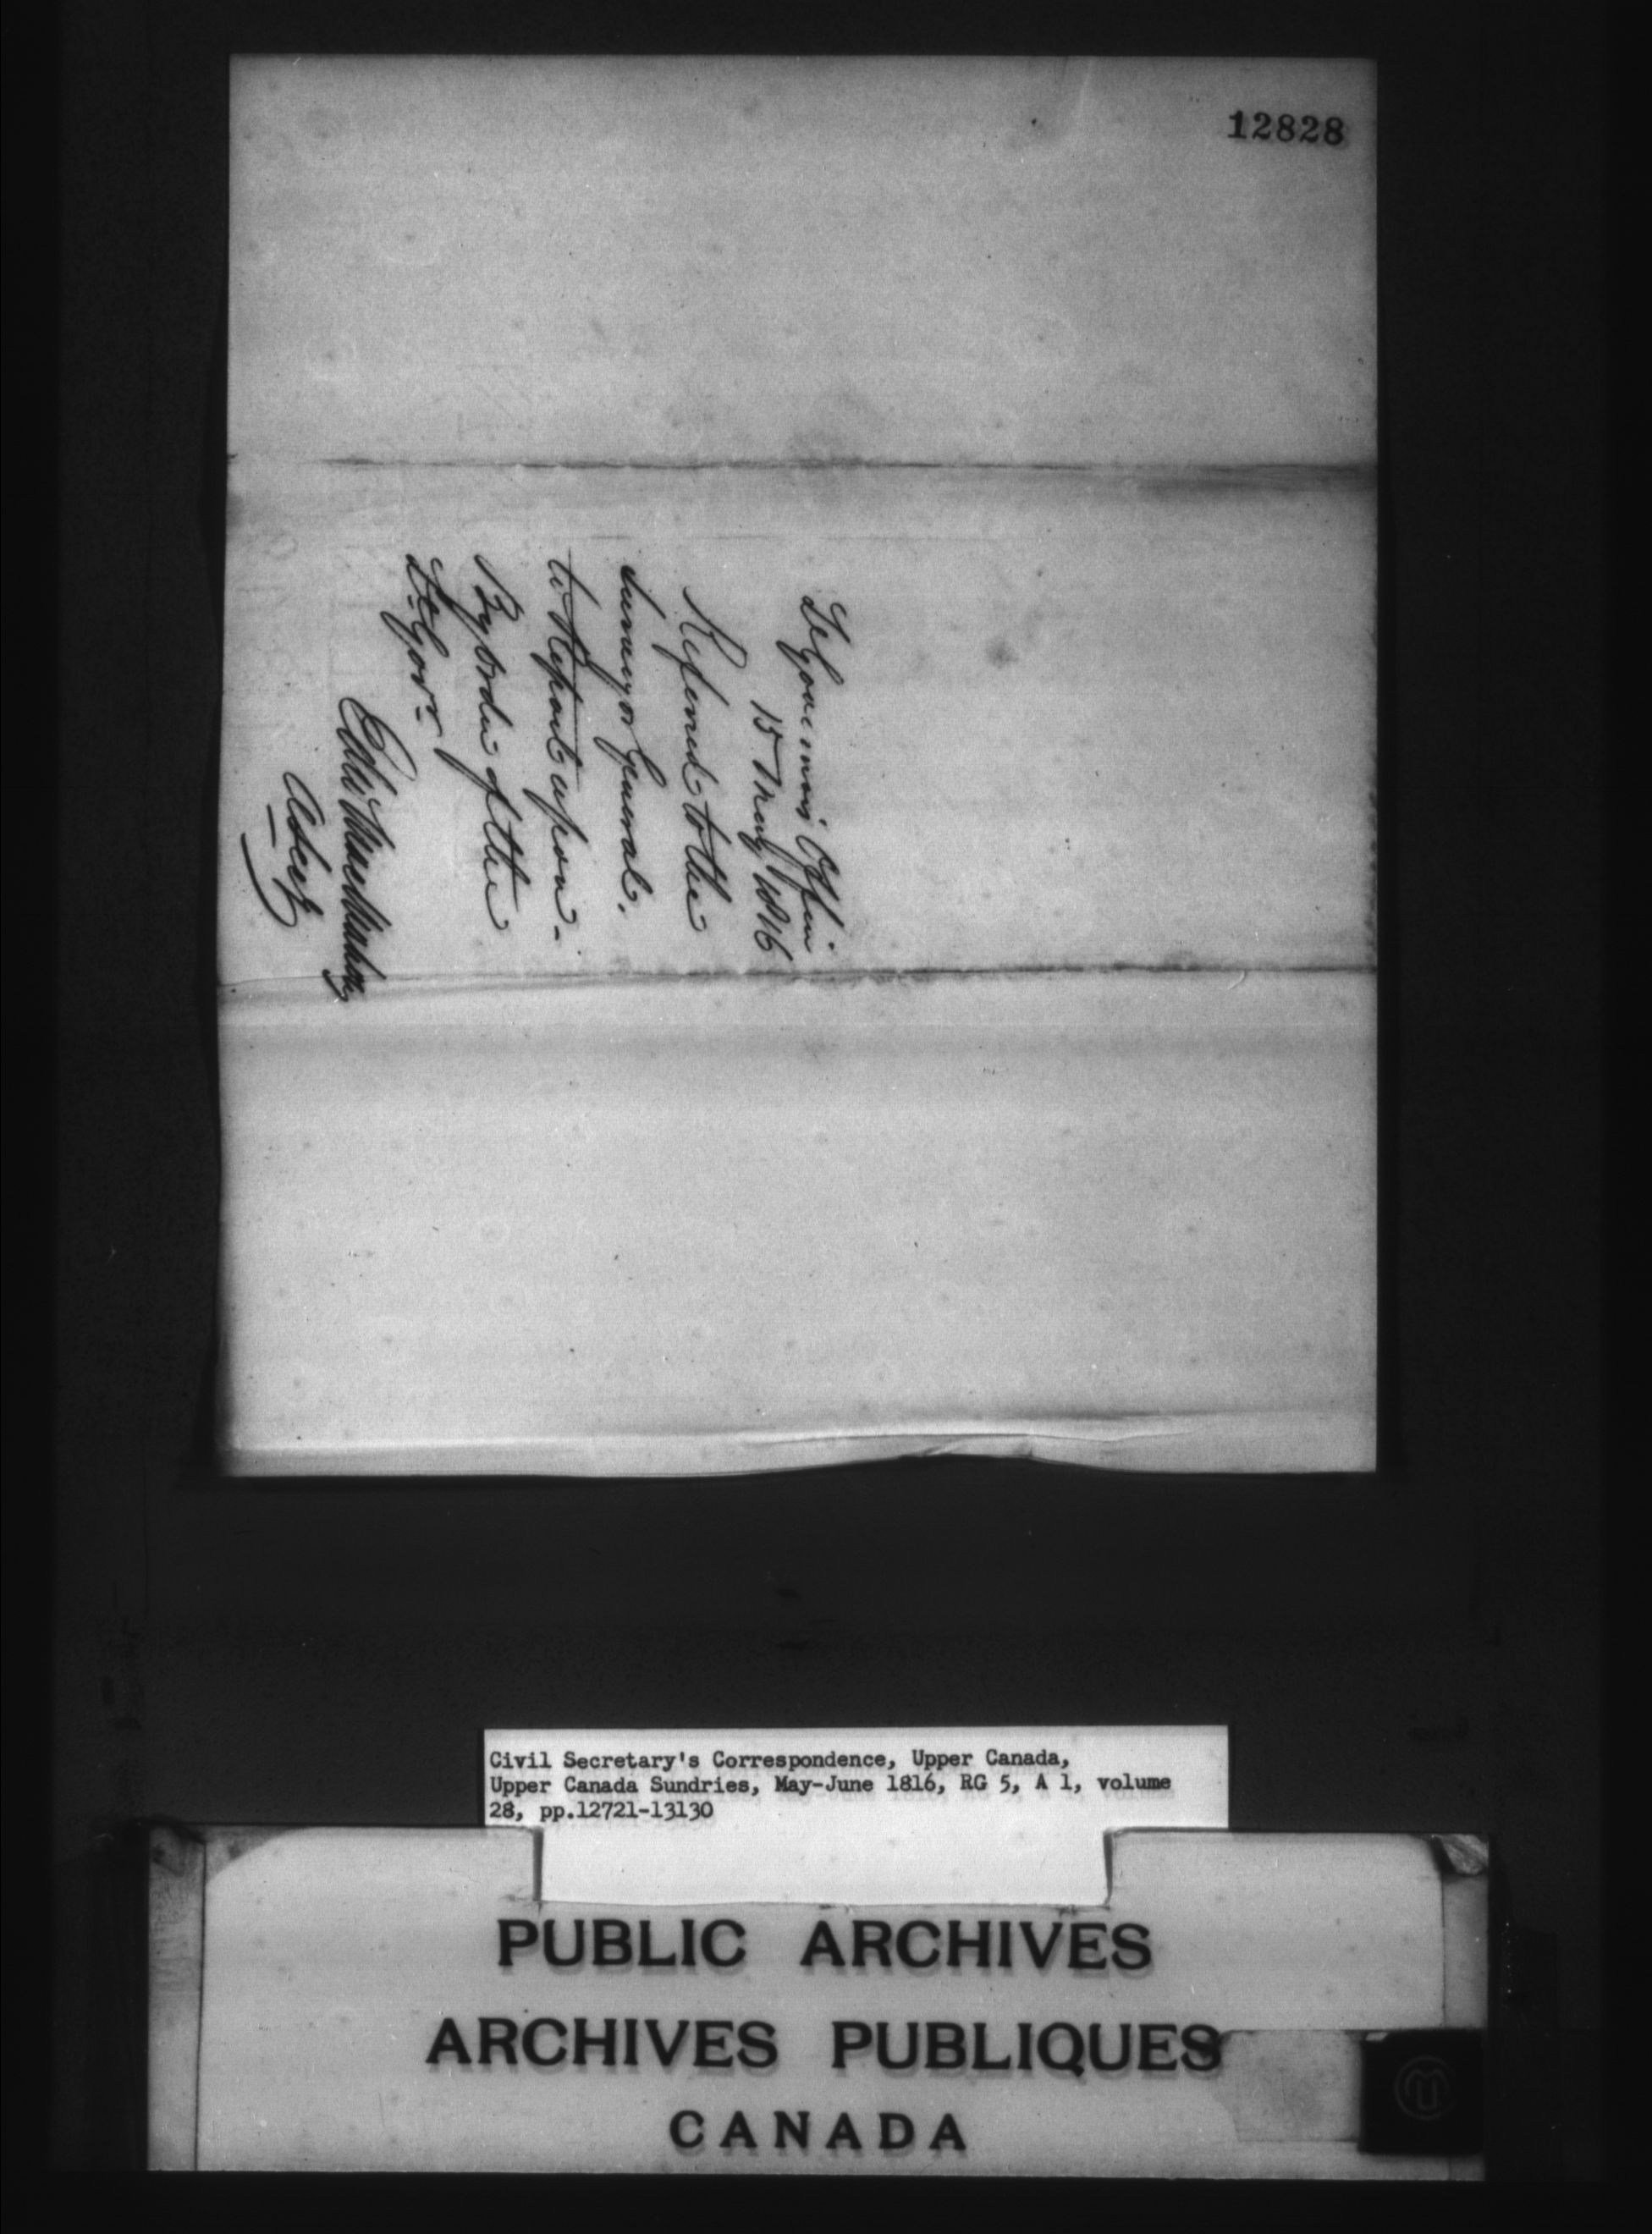 12828
Lt Governors Office
15 May 1816
Referred to the
Surveyor General.
to Report upon -
By Order of the
Lt Govr
Edw MacMahon
Civil Secretary's Correspondence, Upper Canada,
Upper Canada Sundries, May-June 1816, RG 5, A 1, volume
28, pp.12721-13130
PUBLIC ARCHIVES
ARCHIVES PUBLIQUES
CANADA